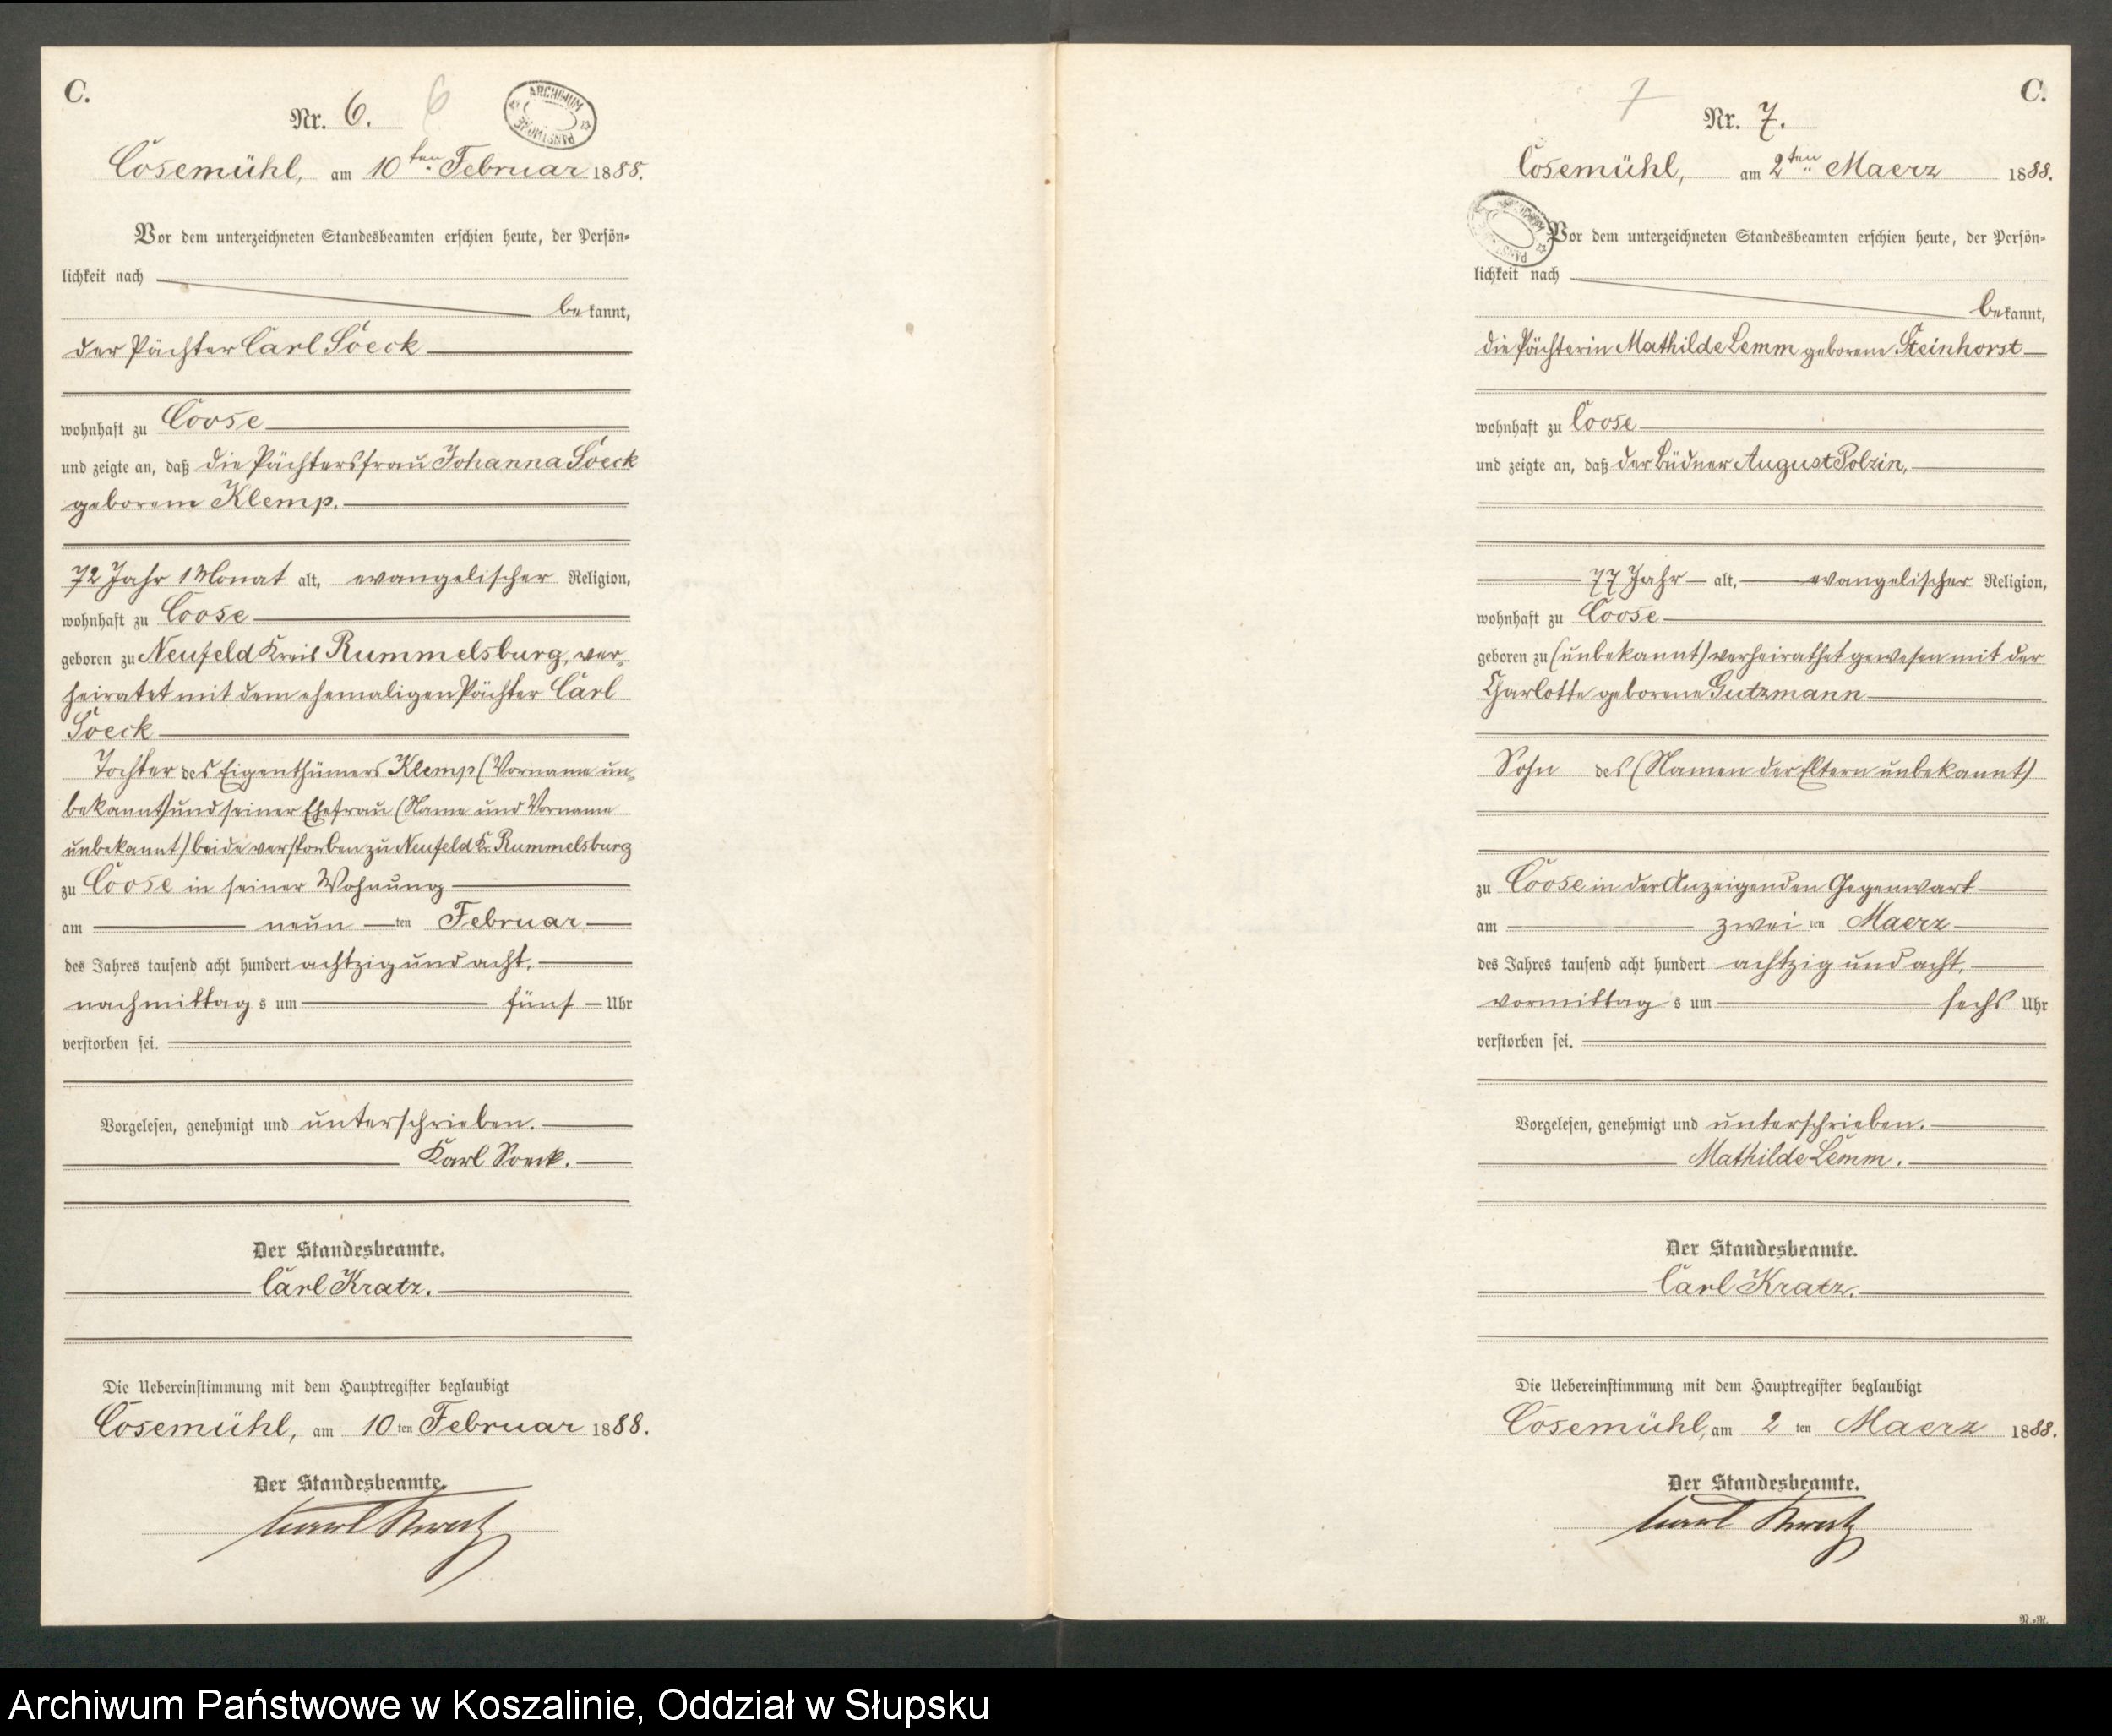 C.
Nr. 6.
6
ARCHIWUM PAŃSTWOWE
Cosemühl, am 10ten Februar 1888.
Vor dem unterzeichneten Standesbeamten erschien heute, der Persön-
lichkeit nach
bekannt,
der Pächter Carl Soeck
wohnhaft zu Coose
und zeigte an, daß die Pächtersfrau Johanna Soeck
geborene Klemp.
72 Jahr 1 Monat alt, evangelischer Religion,
wohnhaft zu Coose
geboren zu Neufeld Kreis Rummelsburg, ver-
heiratet mit dem ehemaligen Pächter Carl
Soeck
Tochter des Eigenthümers Klemp (Vorname un-
bekannt) und seiner Ehefrau (Name und Vorname
unbekannt) beide verstorben zu Neufeld Kr. Rummelsburg
zu Coose in seiner Wohnung
am neun ten Februar
des Jahres tausend acht hundert achtzig und acht,
nachmittags um fünf Uhr
verstorben sei.
Vorgelesen, genehmigt und unterschrieben.
Karl Soeck.
Der Standesbeamte.
Carl Kratz.
Die Uebereinstimmung mit dem Hauptregister beglaubigt
Cosemühl, am 10ten Februar 1888.
Der Standesbeamte.
Carl Kratz
C.
7
Nr. 7.
Cosemühl, am 2ten Maerz 1888.
Vor dem unterzeichneten Standesbeamten erschien heute, der Persön-
lichkeit nach
bekannt,
die Pächterin Mathilde Lemm geborene Steinhorst
wohnhaft zu Coose
und zeigte an, daß der Büdner August Polzin,
77 Jahr alt, evangelischer Religion,
wohnhaft zu Coose
geboren zu (unbekannt) verheirathet gewesen mit der
Charlotte geborene Gutzmann
Sohn des (Namen der Eltern unbekannt)
zu Coose in der Anzeigenden Gegenwart
am zwei ten Maerz
des Jahres tausend acht hundert achtzig und acht,
vormittags um sechs Uhr
verstorben sei.
Vorgelesen, genehmigt und unterschrieben.
Mathilde Lemm.
Der Standesbeamte.
Carl Kratz.
Die Uebereinstimmung mit dem Hauptregister beglaubigt
Cosemühl, am 2 ten Maerz 1888.
Der Standesbeamte.
Carl Kratz
Archiwum Państwowe w Koszalinie, Oddział w Słupsku